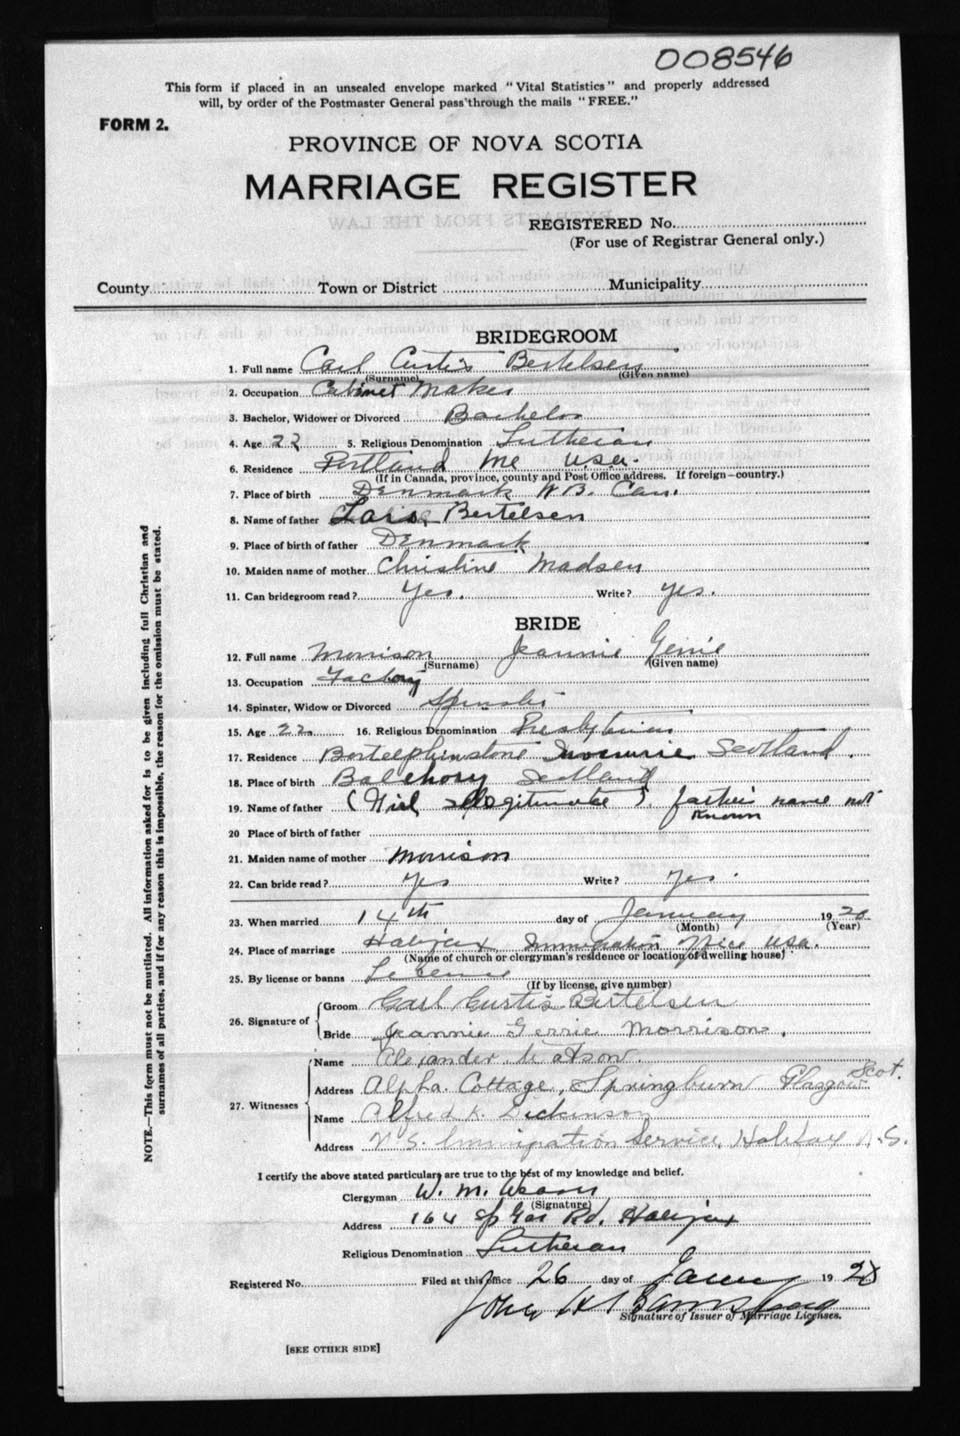 008546
This form if placed in an unsealed envelope marked "Vital Statistics" and properly addressed
will, by order of the Postmaster General pass through the mails "FREE."
FORM 2.
PROVINCE OF NOVA SCOTIA
MARRIAGE REGISTER
REGISTERED No.
(For use of Registrar General only.)
County Town or District Municipality
BRIDEGROOM
1. Full name Carl Curtis Bertelsen
(Surname) (Given name)
2. Occupation Cabinet Maker
3. Bachelor, Widower or Divorced Bachelor
4. Age 22 5. Religious Denomination Lutheran
6. Residence Portland Me U.S.A.
(If in Canada, province, county and Post Office address. If foreign—country.)
7. Place of birth Denmark N.B. Can.
8. Name of father Lars Bertelsen
9. Place of birth of father Denmark
10. Maiden name of mother Christine Madsen
11. Can bridegroom read? Yes. Write? Yes.
BRIDE
12. Full name Morrison Jeannie
(Surname) (Given name)
13. Occupation Factory
14. Spinster, Widow or Divorced Spinster
15. Age 22 16. Religious Denomination Presbyterian
17. Residence Scotland.
18. Place of birth Scotland
19. Name of father ( Illegitimate ). father's name not
known
20 Place of birth of father
21. Maiden name of mother Morrison
22. Can bride read? Yes Write? Yes.
23. When married 14th day of January 19 28
(Month) (Year)
24. Place of marriage Halifax Immigration Office USA.
(Name of church or clergyman's residence or location of dwelling house)
25. By license or banns License
(If by license, give number)
26. Signature of Groom Carl Curtis Bertelsen
Bride Jeannie Gerrie Morrison.
27. Witnesses Name Alexander Watson.
Address Alpha Cottage, Springburn Glasgow Scot.
Name Alfred K. Dickinson
Address U.S. Immigration Service, Halifax N.S.
I certify the above stated particulars are true to the best of my knowledge and belief.
Clergyman W. M.
(Signature)
Address 164 Sp Gar Rd. Halifax
Religious Denomination Lutheran
Registered No. Filed at this office 26 day of 19 28
John H
Signature of Issuer of Marriage Licenses.
[SEE OTHER SIDE]
NOTE.—This form must not be mutilated. All information asked for is to be given including full Christian and
surnames of all parties, and if for any reason this is impossible, the reason for the omission must be stated.